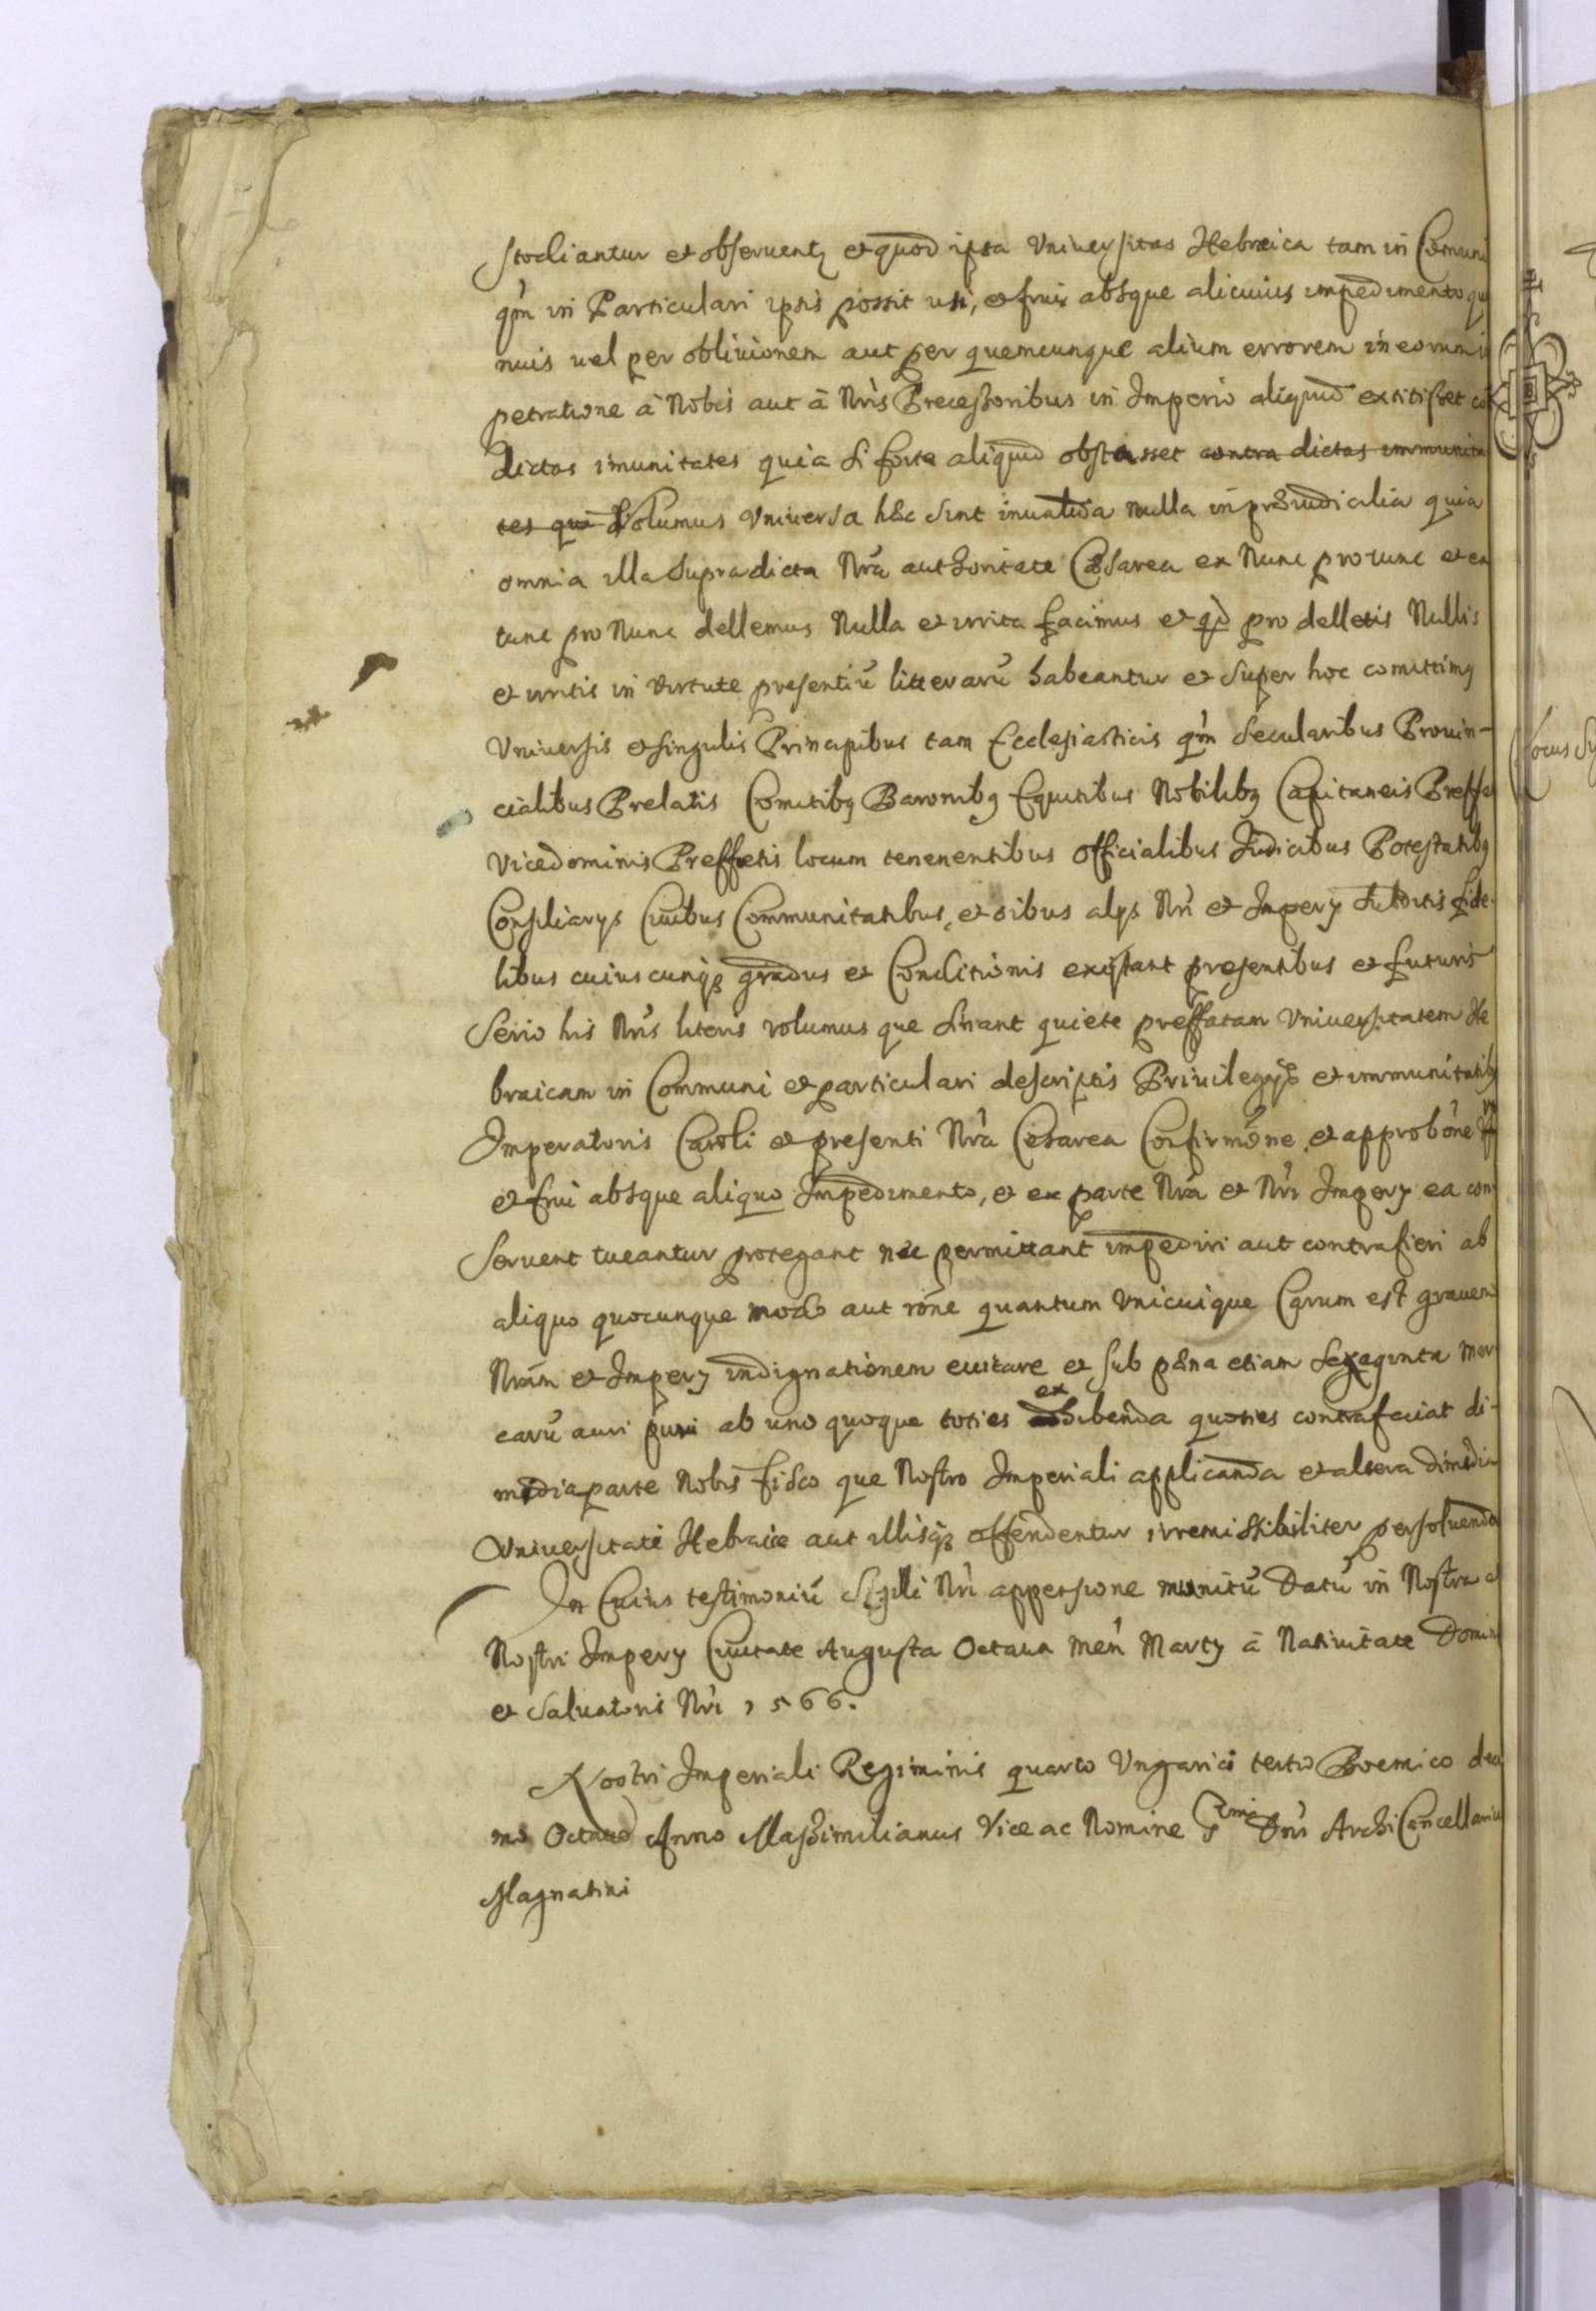 stodiantur et obseruent₉ et quod ipsa Vniuersitas Hebraica tam in Comuni
qm̃ in Particulari ipsis possit uti, et frui absque alicuius impedimento
nuis uel per obliuionem aut per quemcunque alium errorem in eorum
petratione à Nobis aut à Nr̃is Precessoribus in Imperio aliquid extitisset
dictas imunitates quia si forte aliquid obstasset contra dictas immunita
tes qui Volumus Vniuersa hæc sint inualida nulla in præiudicialia quia
omnia illa supradicta Nrã authoritate Cæsarea ex Nunc pro tunc et ex
tunc pro Nunc dellemus Nulla et irrita facimus et qd̀ pro delletis Nullis
et irritis in virtute presentiũ litterarũ habeantur et super hoc comittimꝰ
Vniuersis et singulis Principibus tam Ecclesiasticis qm̃ secularibus Prouin-
cialibus Prelatis Comitibꝰ Baronibꝰ Equitibus Nobilibꝰ Capitaneis
Vicedominis Preffetis locum tenenentibus officialibus Iudicibus Potestatibꝰ
Consiliarys Ciuibus Communitatibus, et oibus alys Nri et Impery subditis fide-
libus cuiuscunq₃ gradus et Conditionis existant presentibus et futuris
Serio his Nris literis volumus que sinant quiete preffatam Vniuersitatem He
braicam in Communi et particulari descriptis Priuilegys et immunitatibꝰ
Imperatoris Caroli et presenti Nrã Cesarea Confirmõne et approbõne
et frui absque aliquo Impedimento, et ex parte Nrã et Nri Impery ea con
seruent tueantur protegant nec permittant impediri aut contrafieri ab
aliquo quocunque modo aut rõne quantum Vnicuique Carum est grauem
Nrãm et Impery indignationem euitare et sub pæna etiam sexaginta mar
carũ auri puri ab uno quoque toties exhibenda quoties contrafaciat di-
midia parte Nobis fisco que Nostro Imperiali applicanda et altera dimidia
Vniuersitati Hebraice aut illisq₃ offendentur irremissibiliter persoluenda
In Cuius testimoniũ Sigilli Nri appensione munitũ Datũ in Nostra
Nostri Impery Ciuitate Augusta Octaua men̄ Marty à Natiuitate Domini
et saluatoris Nri 1566.
Nostri Imperiali Regiminis quarto Vngarici tertio Boemico deci
mo Octauo Anno Massimilianus Vice ac Nomine Dnĩ ArchiCancellarius
Magnatini